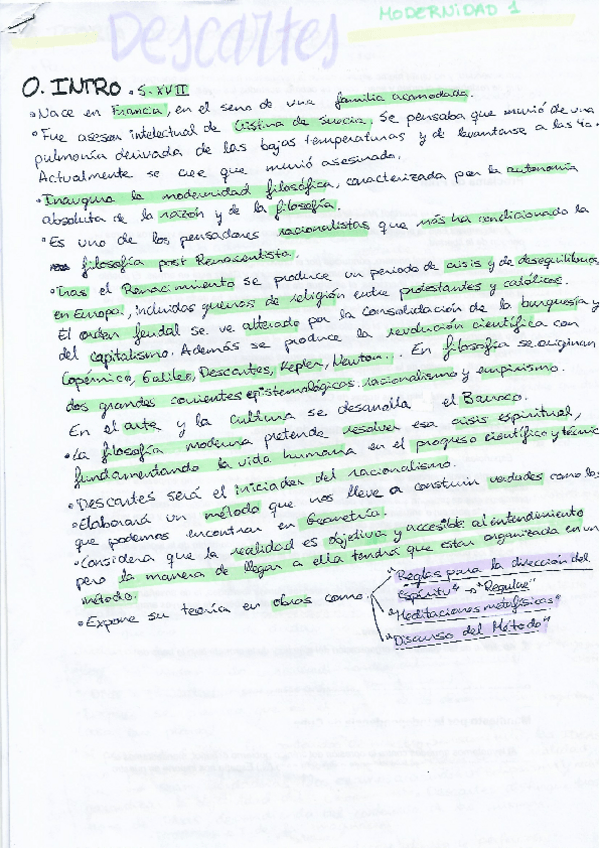 MODERNIDAD 1
Descartes
0. INTRO • S. XVII
• Nace en Francia, en el seno de una familia acomodada.
• Fue asesor intelectual de Cristina de Suecia. Se pensaba que murió de una
pulmonía derivada de las bajas temperaturas y de levantarse a las 4a.
Actualmente se cree que murió asesinado.
• Inaugura la modernidad filosófica, caracterizada por la autonomía
absoluta de la razón y de la filosofía.
• Es uno de los pensadores racionalistas que más ha condicionado la
filosofía post Renacentista.
• Tras el Renacimiento se produce un periodo de crisis y de desequilibrios
en Europa, incluidas guerras de religión entre protestantes y católicos.
El orden feudal se ve alterado por la consolidación de la burguesía y
del capitalismo. Además se produce la revolución científica con
Copérnico, Galileo, Descartes, Kepler, Newton... En filosofía se originan
dos grandes corrientes epistemológicas: racionalismo y empirismo.
En el arte y la cultura se desarrolla el Barroco.
• La filosofía moderna pretende resolver esa crisis espiritual,
fundamentando la vida humana en el progreso científico y técnic
• Descartes será el iniciador del racionalismo.
• Elaborará un método que nos lleve a construir verdades como las
que podemos encontrar en Geometría.
• Considera que la realidad es objetiva y accesible al entendimiento
pero la manera de llegar a ella tendrá que estar organizada en un
método.
• Expone su teoría en obras como
"Reglas para la dirección del
Espíritu" → "Regulae"
"Meditaciones metafísicas"
"Discurso del Método"